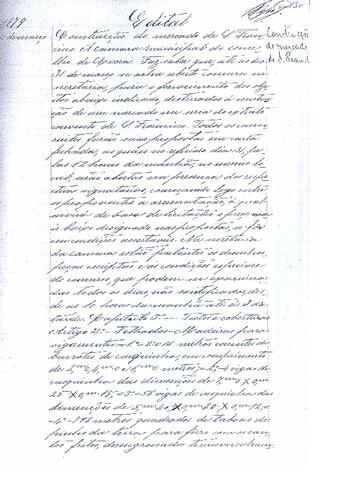 1879
Edital
de março
Construcção do mercado de S. Fran-
cisco A camara municipal do conce-
lho de Evora. Faz saber que até ao dia
31 de março se acha aberto concurso na
secretaria, para o fornecimento dos obje-
ctos abaixo indicados, destinados á construc-
ção de um mercado na cerca do extincto
convento de S. Francisco. Todos os concor-
rentes farão suas propostas em carta
fechada, as quaes no referido dia 31, pe-
las 12 horas da manhã, no mesmo lo-
cal, serão abertas na presença dos respe-
ctivos signatarios, começando logo entre
os proponentes a arrematação, á qual
servirá de base de licitação o preço ma-
is baixo designado nas propostas, se fôr
em condições acceitaveis. Na secretaria
da camara estão patentes os desenhos,
peças escriptas e as condições especiaes
do concurso, que podem ser examinadas
das todos os dias, não santificados, des-
de as 10 horas da manhã até ás 3 da
tarde. Capitulo 3º Tectos e coberturas
Artigo 2º Telhados Madeiras para
vigamentos 1º 2:014 metros correntes de
barrotes de casquinha, em comprimento
de
metros; 2º 4 vigas de
casquinha das dimensões de
3º 56 vigas de casquinha das
dimensões de
4º
metros quadrados de taboas de
pinho da terra para forro com os can-
tos feitos, desengrossadas
Construcção
do mercado
de S. Franc.